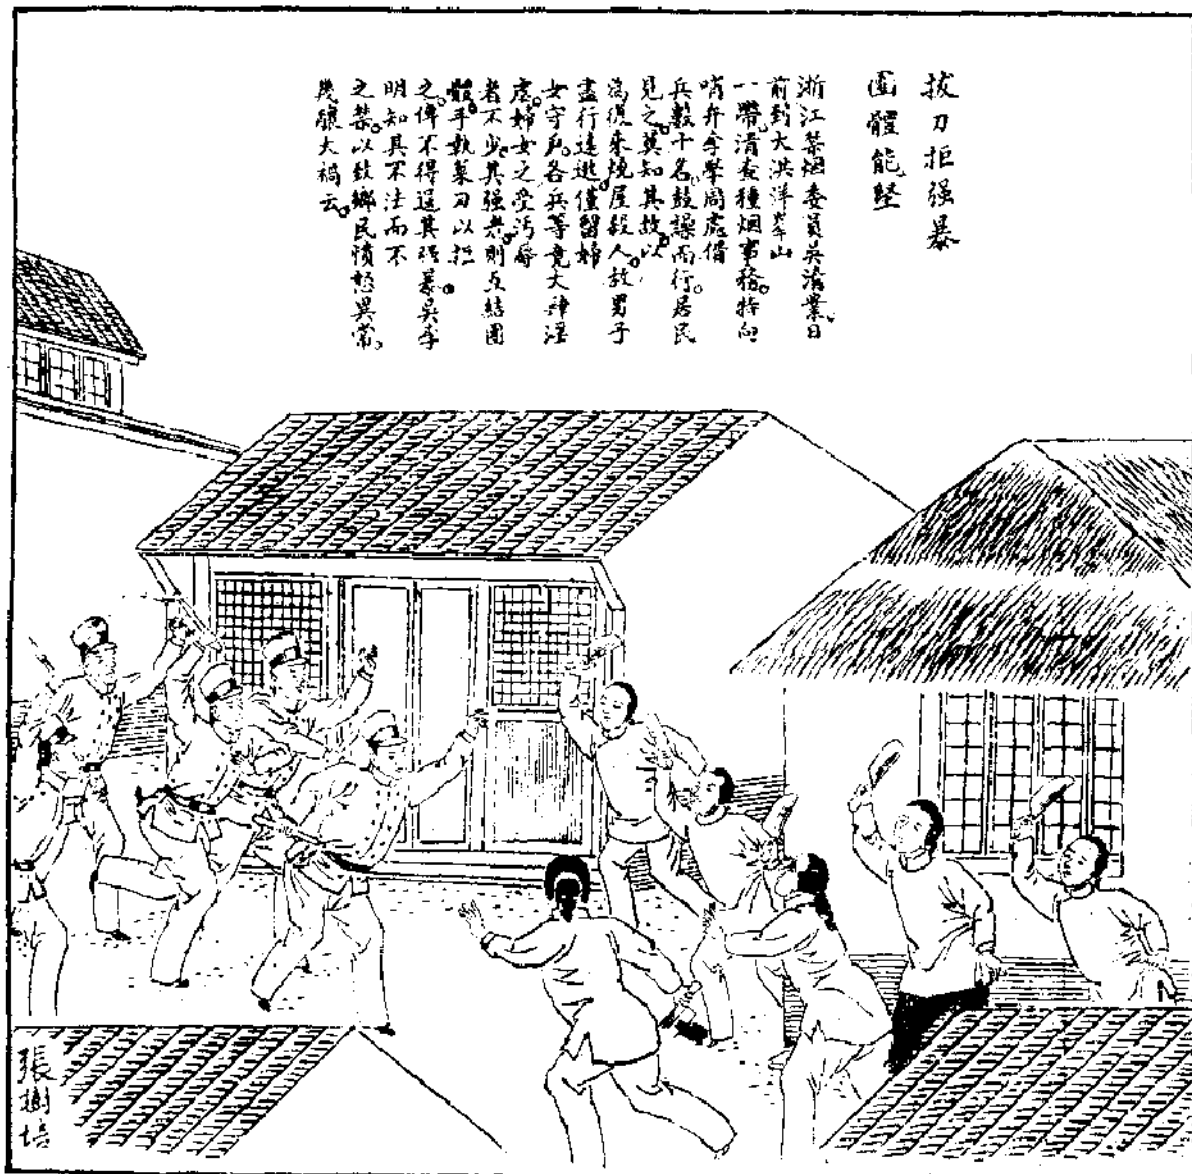 拔刀拒强暴
團體能堅
浙江禁烟委員吳濬業日
前到大洪洋半山
一帶清查種烟事務特向
哨弁李學周處借
兵數十名鼓譟而行居民
見之莫知其故以
為復來燒屋殺人故男子
盡行遠逃僅留婦
女守戶各兵等竟大肆淫
虐婦女之受污辱
者不少其强者則互結團
體手執菜刀以拒
之俾不得逞其强暴吳李
明知其不法而不
之禁以致鄉民憤怒異常
幾釀大禍云
張樹培